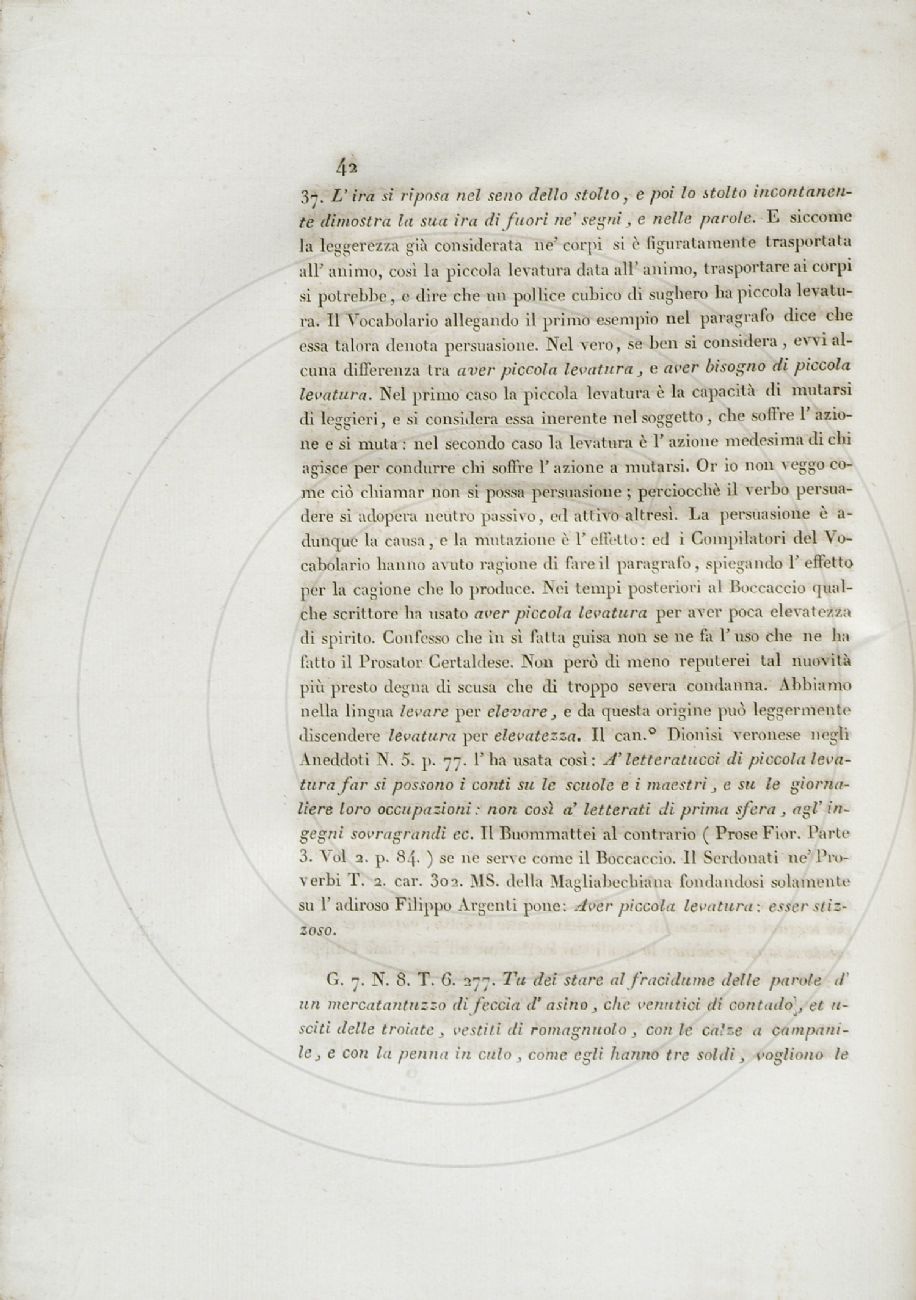 42
37. L' ira si riposa nel seno dello stolto, e poi lo stolto incontanen-
te dimostra la sua ira di fuori ne' segni, e nelle parole. E siccome
la leggerezza già considerata ne' corpi si è figuratamente trasportata
all' animo, così la piccola levatura data all' animo, trasportare ai corpi
si potrebbe, e dire che un pollice cubico di sughero ha piccola levatu-
ra. Il Vocabolario allegando il primo esempio nel paragrafo dice che
essa talora denota persuasione. Nel vero, se ben si considera, evvi al-
cuna differenza tra aver piccola levatura, e aver bisogno di piccola
levatura. Nel primo caso la piccola levatura è la capacità di mutarsi
di leggieri, e si considera essa inerente nel soggetto, che soffre l' azio-
ne e si muta: nel secondo caso la levatura è l' azione medesima di chi
agisce per condurre chi soffre l' azione a mutarsi. Or io non veggo co-
me ciò chiamar non si possa persuasione; perciocchè il verbo persua-
dere si adopera neutro passivo, ed attivo altresì. La persuasione è a-
dunque la causa, e la mutazione è l' effetto: ed i Compilatori del Vo-
cabolario hanno avuto ragione di fare il paragrafo, spiegando l' effetto
per la cagione che lo produce. Nei tempi posteriori al Boccaccio qual-
che scrittore ha usato aver piccola levatura per aver poca elevatezza
di spirito. Confesso che in sì fatta guisa non se ne fa l' uso che ne ha
fatto il Prosator Certaldese. Non però di meno reputerei tal nuovità
più presto degna di scusa che di troppo severa condanna. Abbiamo
nella lingua levare per elevare, e da questa origine può leggermente
discendere levatura per elevatezza. Il can.° Dionisi veronese negli
Aneddoti N. 5. p. 77. l' ha usata così: A' letteratucci di piccola leva-
tura far si possono i conti su le scuole e i maestri, e su le giorna-
liere loro occupazioni: non così a' letterati di prima sfera, agl' in-
gegni sovragrandi ec. Il Buommattei al contrario ( Prose Fior. Parte
3. Vol 2. p. 84. ) se ne serve come il Boccaccio. Il Serdonati ne' Pro-
verbi T. 2. car. 302. MS. della Magliabechiana fondandosi solamente
su l' adiroso Filippo Argenti pone: Aver piccola levatura: esser stiz-
zoso.
G. 7. N. 8. T. 6. 277. Tu dei stare al fracidume delle parole d'
un mercatantuzzo di feccia d' asino, che venutici di contado, et u-
sciti delle troiate, vestiti di romagnuolo, con le calze a campani-
le, e con la penna in culo, come egli hanno tre soldi, vogliono le